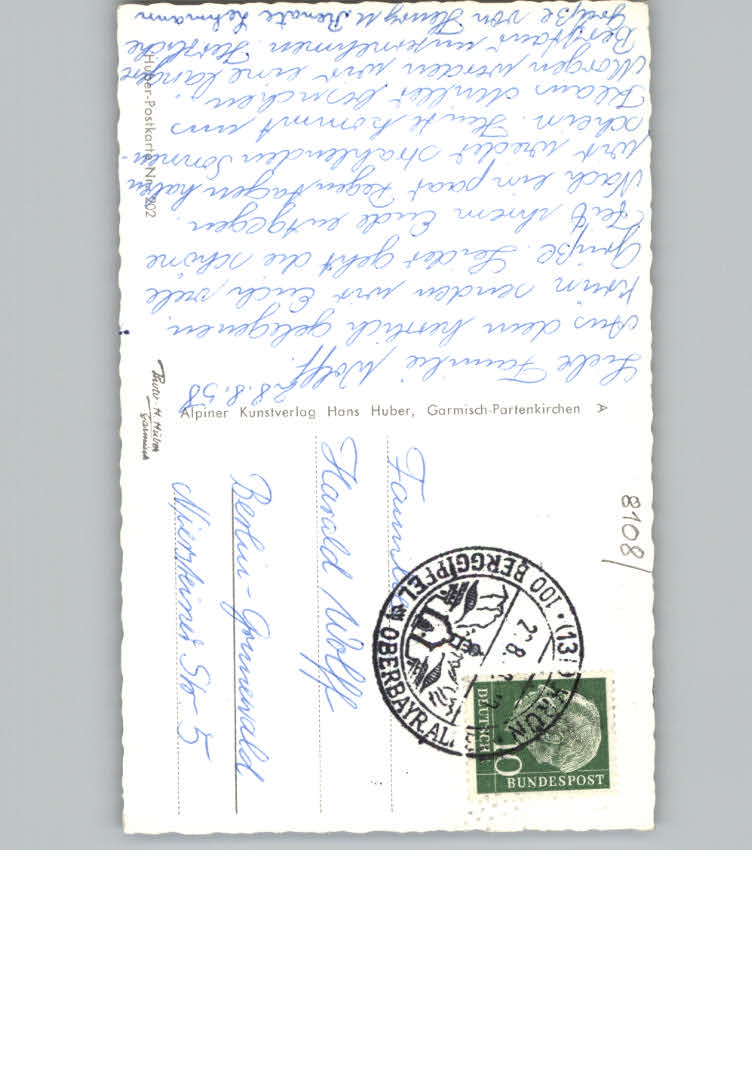 28.8.58
Liebe Familie Wolff.
Aus dem herrlich gelegenen
Krün senden wir Euch viele
Grüße. Leider geht die schöne
Zeit ihrem Ende entgegen.
Nach ein paar Regentagen haben
wir wieder strahlenden Sonnen-
schein. Heute kommt uns
Klaus Müller besuchen.
Morgen werden wir eine lange
Bergtour unternehmen. Herzliche
Grüße von Henry u. Renate Lehmann
Huber-Postkarte Nr. 202
Alpiner Kunstverlag Hans Huber, Garmisch-Partenkirchen A
Photo-H. Huber
Garmisch
8108
Familie
Harald Wolff
Berlin-Grunewald
Niersteiner Str 5
100 BERGGIPFEL
OBERBAYR. AL
KRÜN
DEUTSCHE
BUNDESPOST